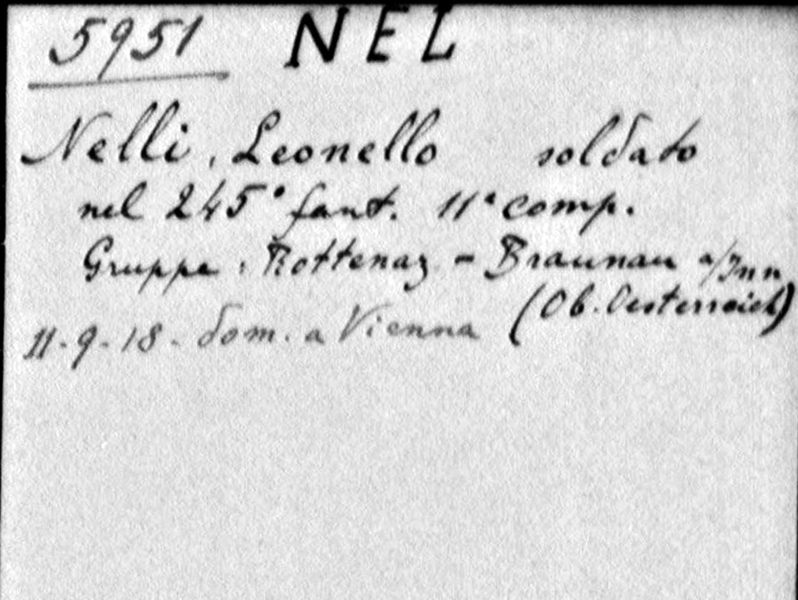 5951 NEL
Nelli, Leonello soldato
nel 245° fant. 11ª comp.
Gruppe, Rottenaz - Braunau a/Inn
(Ob. Oesterreich)
11-9-18- dom. a Vienna